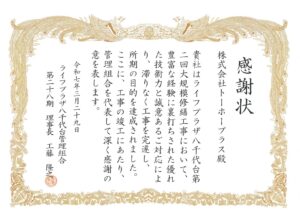 感謝状
株式会社トーホープラス殿
貴社はライフプラザ八千代台第
二回大規模修繕工事において、
豊富な経験に裏打ちされた優れ
た技術力と誠意あるご対応によ
り、滞りなく工事を完遂し、
所期の目的を達成されました。
ここに、工事の竣工にあたり、
管理組合を代表して深く感謝の
意を表します。
令和七年三月二十九日
ライフプラザ八千代台管理組合
第二十八期 理事長 工藤 隆